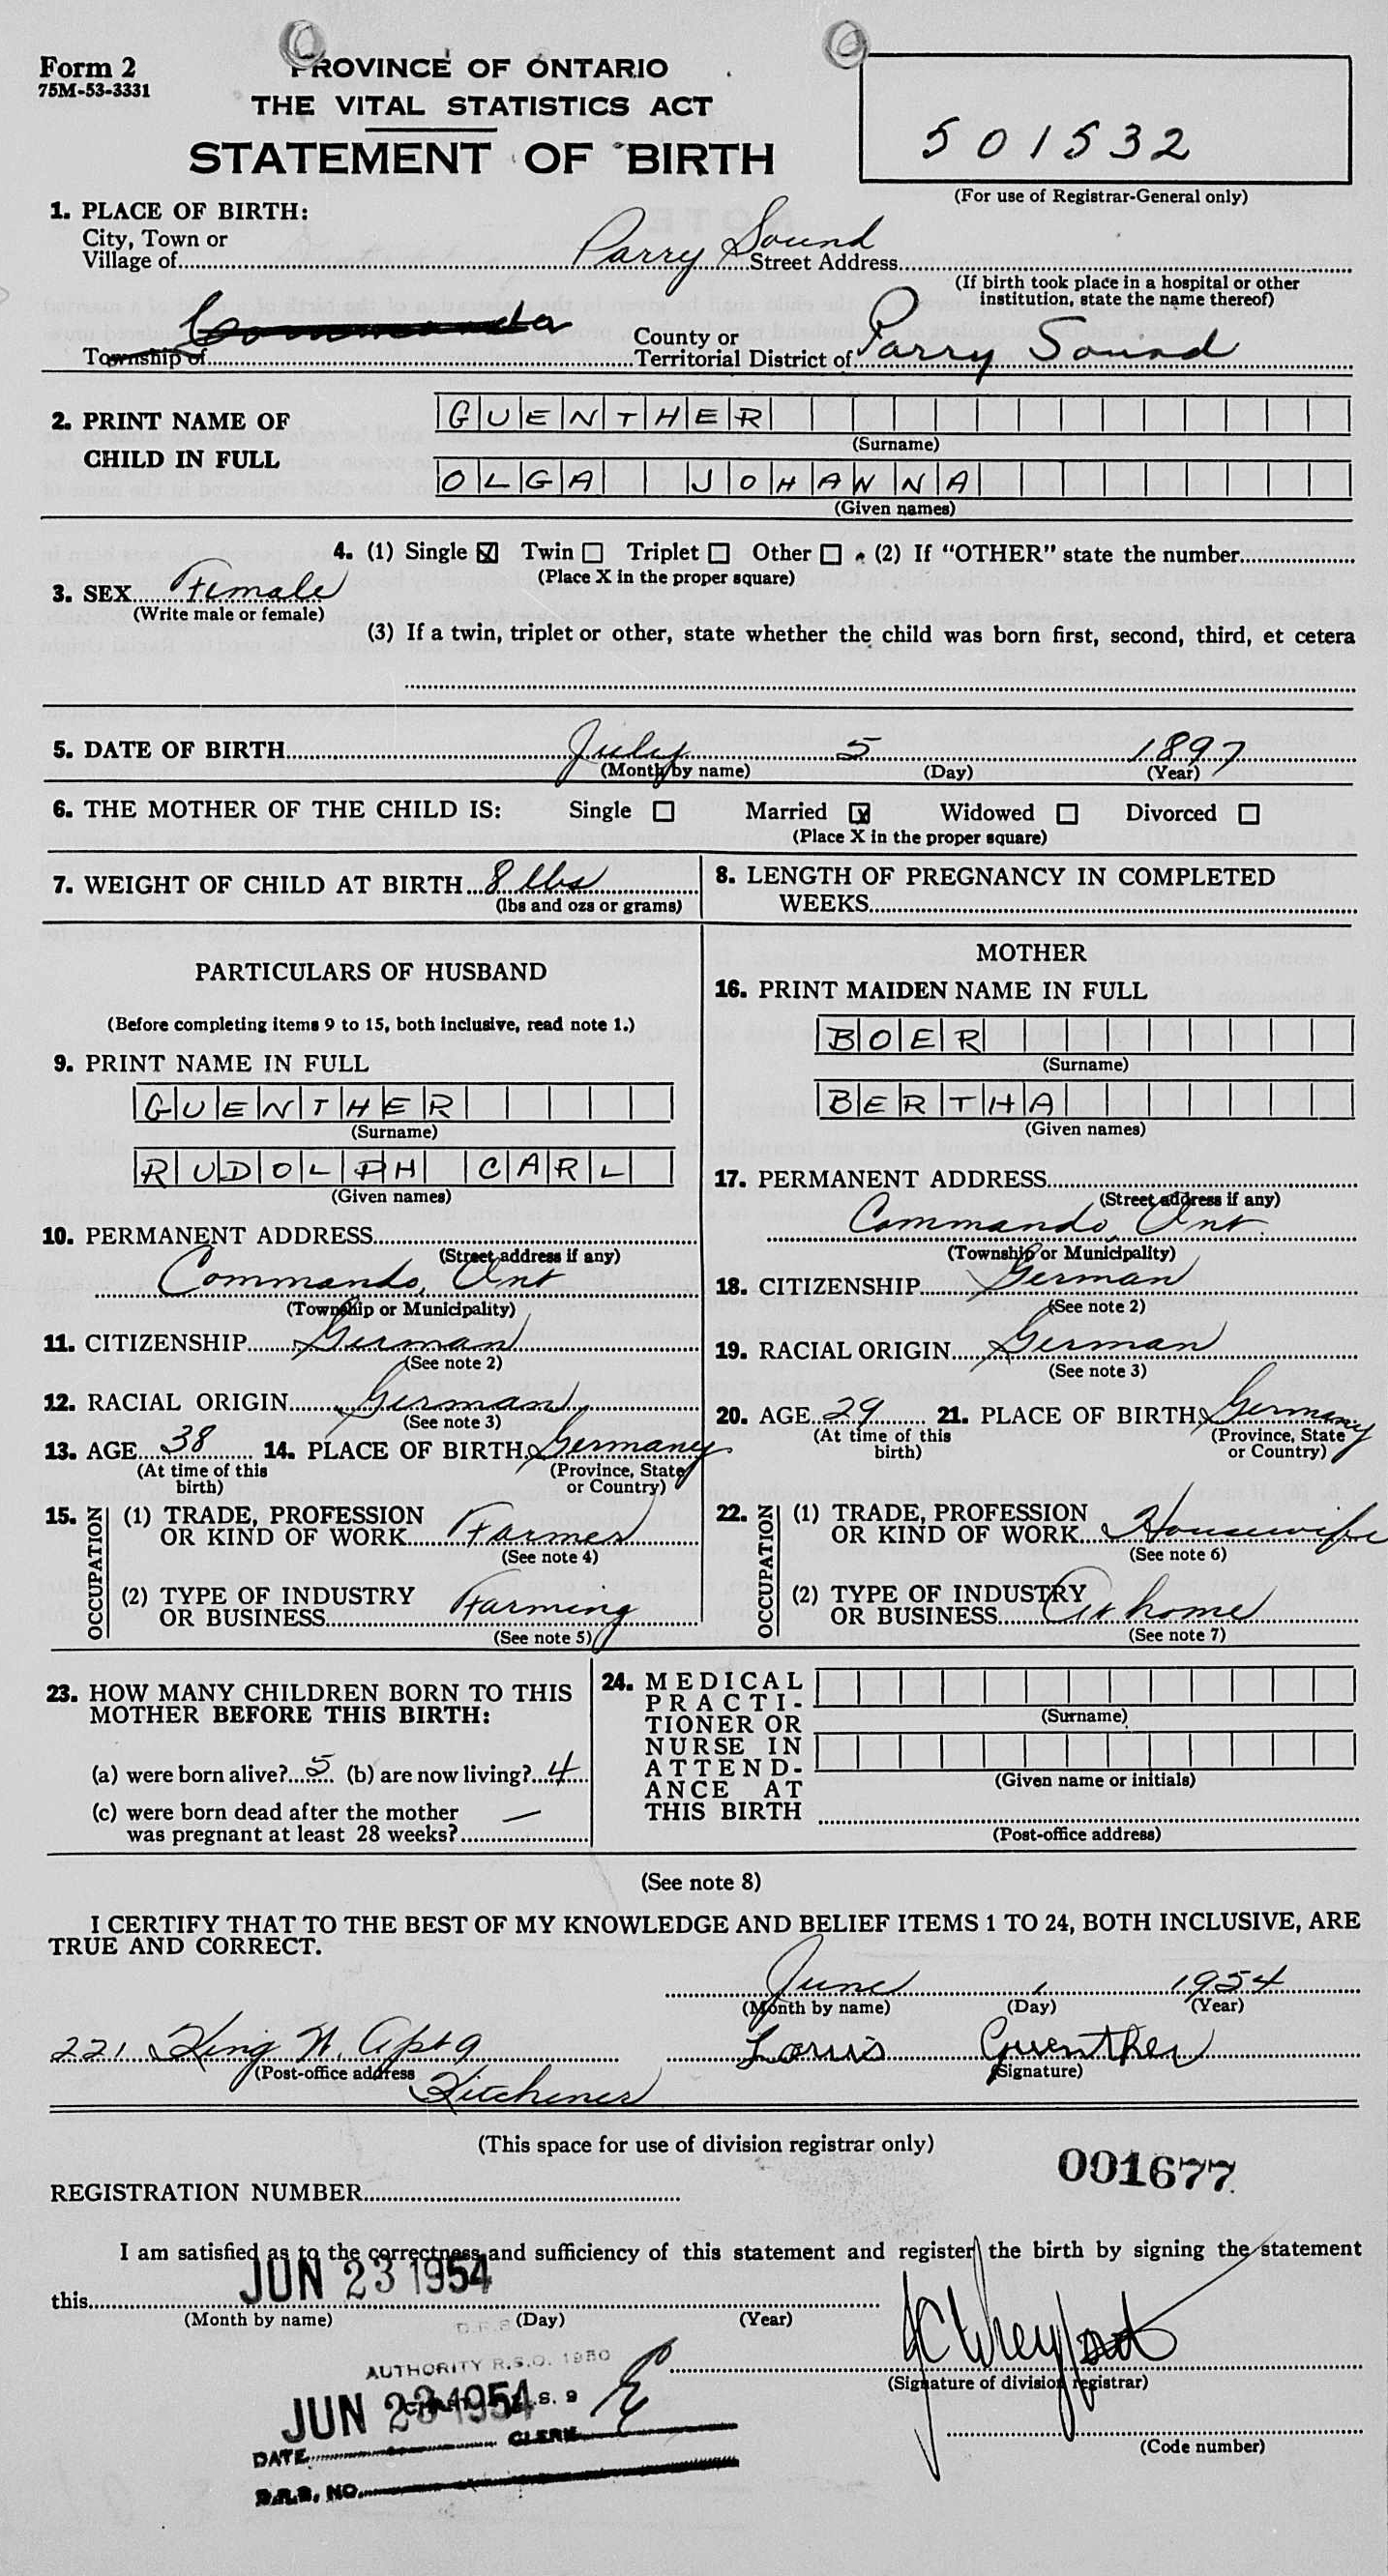 Form 2
75M-53-3331
PROVINCE OF ONTARIO
THE VITAL STATISTICS ACT
STATEMENT OF BIRTH
501532
(For use of Registrar-General only)
1. PLACE OF BIRTH:
City, Town or
Village of Parry Sound Street Address
(If birth took place in a hospital or other
institution, state the name thereof)
Township of County or
Territorial District of Parry Sound
2. PRINT NAME OF
CHILD IN FULL
GUENTHER
(Surname)
OLGA JOHANNA
(Given names)
4. (1) Single ☒ Twin ☐ Triplet ☐ Other ☐ (2) If "OTHER" state the number
(Place X in the proper square)
3. SEX Female
(Write male or female)
(3) If a twin, triplet or other, state whether the child was born first, second, third, et cetera
5. DATE OF BIRTH July 5 1897
(Month by name) (Day) (Year)
6. THE MOTHER OF THE CHILD IS: Single ☐ Married ☒ Widowed ☐ Divorced ☐
(Place X in the proper square)
7. WEIGHT OF CHILD AT BIRTH 8 lbs
(lbs and ozs or grams)
8. LENGTH OF PREGNANCY IN COMPLETED
WEEKS
PARTICULARS OF HUSBAND
(Before completing items 9 to 15, both inclusive, read note 1.)
9. PRINT NAME IN FULL
GUENTHER
(Surname)
RUDOLPH CARL
(Given names)
10. PERMANENT ADDRESS
(Street address if any)
Commando, Ont
(Township or Municipality)
11. CITIZENSHIP German
(See note 2)
12. RACIAL ORIGIN German
(See note 3)
13. AGE 38 14. PLACE OF BIRTH Germany
(At time of this
birth)
(Province, State
or Country)
15. OCCUPATION
(1) TRADE, PROFESSION
OR KIND OF WORK Farmer
(See note 4)
(2) TYPE OF INDUSTRY
OR BUSINESS Farming
(See note 5)
MOTHER
16. PRINT MAIDEN NAME IN FULL
BOER
(Surname)
BERTHA
(Given names)
17. PERMANENT ADDRESS
(Street address if any)
Commando, Ont.
(Township or Municipality)
18. CITIZENSHIP German
(See note 2)
19. RACIAL ORIGIN German
(See note 3)
20. AGE 29 21. PLACE OF BIRTH Germany
(At time of this
birth)
(Province, State
or Country)
22. OCCUPATION
(1) TRADE, PROFESSION
OR KIND OF WORK Housewife
(See note 6)
(2) TYPE OF INDUSTRY
OR BUSINESS At home
(See note 7)
23. HOW MANY CHILDREN BORN TO THIS
MOTHER BEFORE THIS BIRTH:
(a) were born alive? 5 (b) are now living? 4
(c) were born dead after the mother
was pregnant at least 28 weeks? —
24. MEDICAL
PRACTI-
TIONER OR
NURSE IN
ATTEND-
ANCE AT
THIS BIRTH
(Surname)
(Given name or initials)
(Post-office address)
(See note 8)
I CERTIFY THAT TO THE BEST OF MY KNOWLEDGE AND BELIEF ITEMS 1 TO 24, BOTH INCLUSIVE, ARE
TRUE AND CORRECT.
June 1 1954
(Month by name) (Day) (Year)
221 King W. Apt 9 Louis Guenther
(Post-office address Kitchener (Signature)
(This space for use of division registrar only)
001677
REGISTRATION NUMBER
I am satisfied as to the correctness and sufficiency of this statement and register the birth by signing the statement
this JUN 23 1954
(Month by name) (Day) (Year)
AUTHORITY R.S.O. 1950
S. 9
JUN 23 1954
(Signature of division registrar)
DATE CLERK
(Code number)
D.R.B. NO.